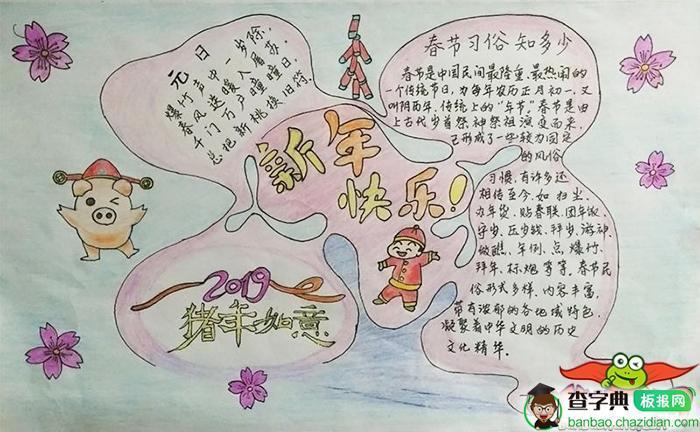 元日
爆竹声中一岁除,
春风送暖入屠苏。
千门万户曈曈日,
总把新桃换旧符。
新年
快乐!
2019
猪年如意
春节习俗知多少
春节是中国民间最隆重、最热闹的
一个传统节日,为每年农历正月初一,又
叫阴历年,传统上的“年节”。春节是由
上古代岁首祭神祭祖演变而来,
已形成了一些较为固定
的风俗
习惯,有许多还
相传至今,如扫尘、
办年货、贴春联、团年饭、
守岁、压岁钱、拜岁、游神、
做醮、年例、点爆竹、
拜年、标烟等等。春节民
俗形式多样、内容丰富,
带有浓郁的各地域特色,
凝聚着中华文明的历史
文化精华。
查字典板报网
banbao.chazidian.com